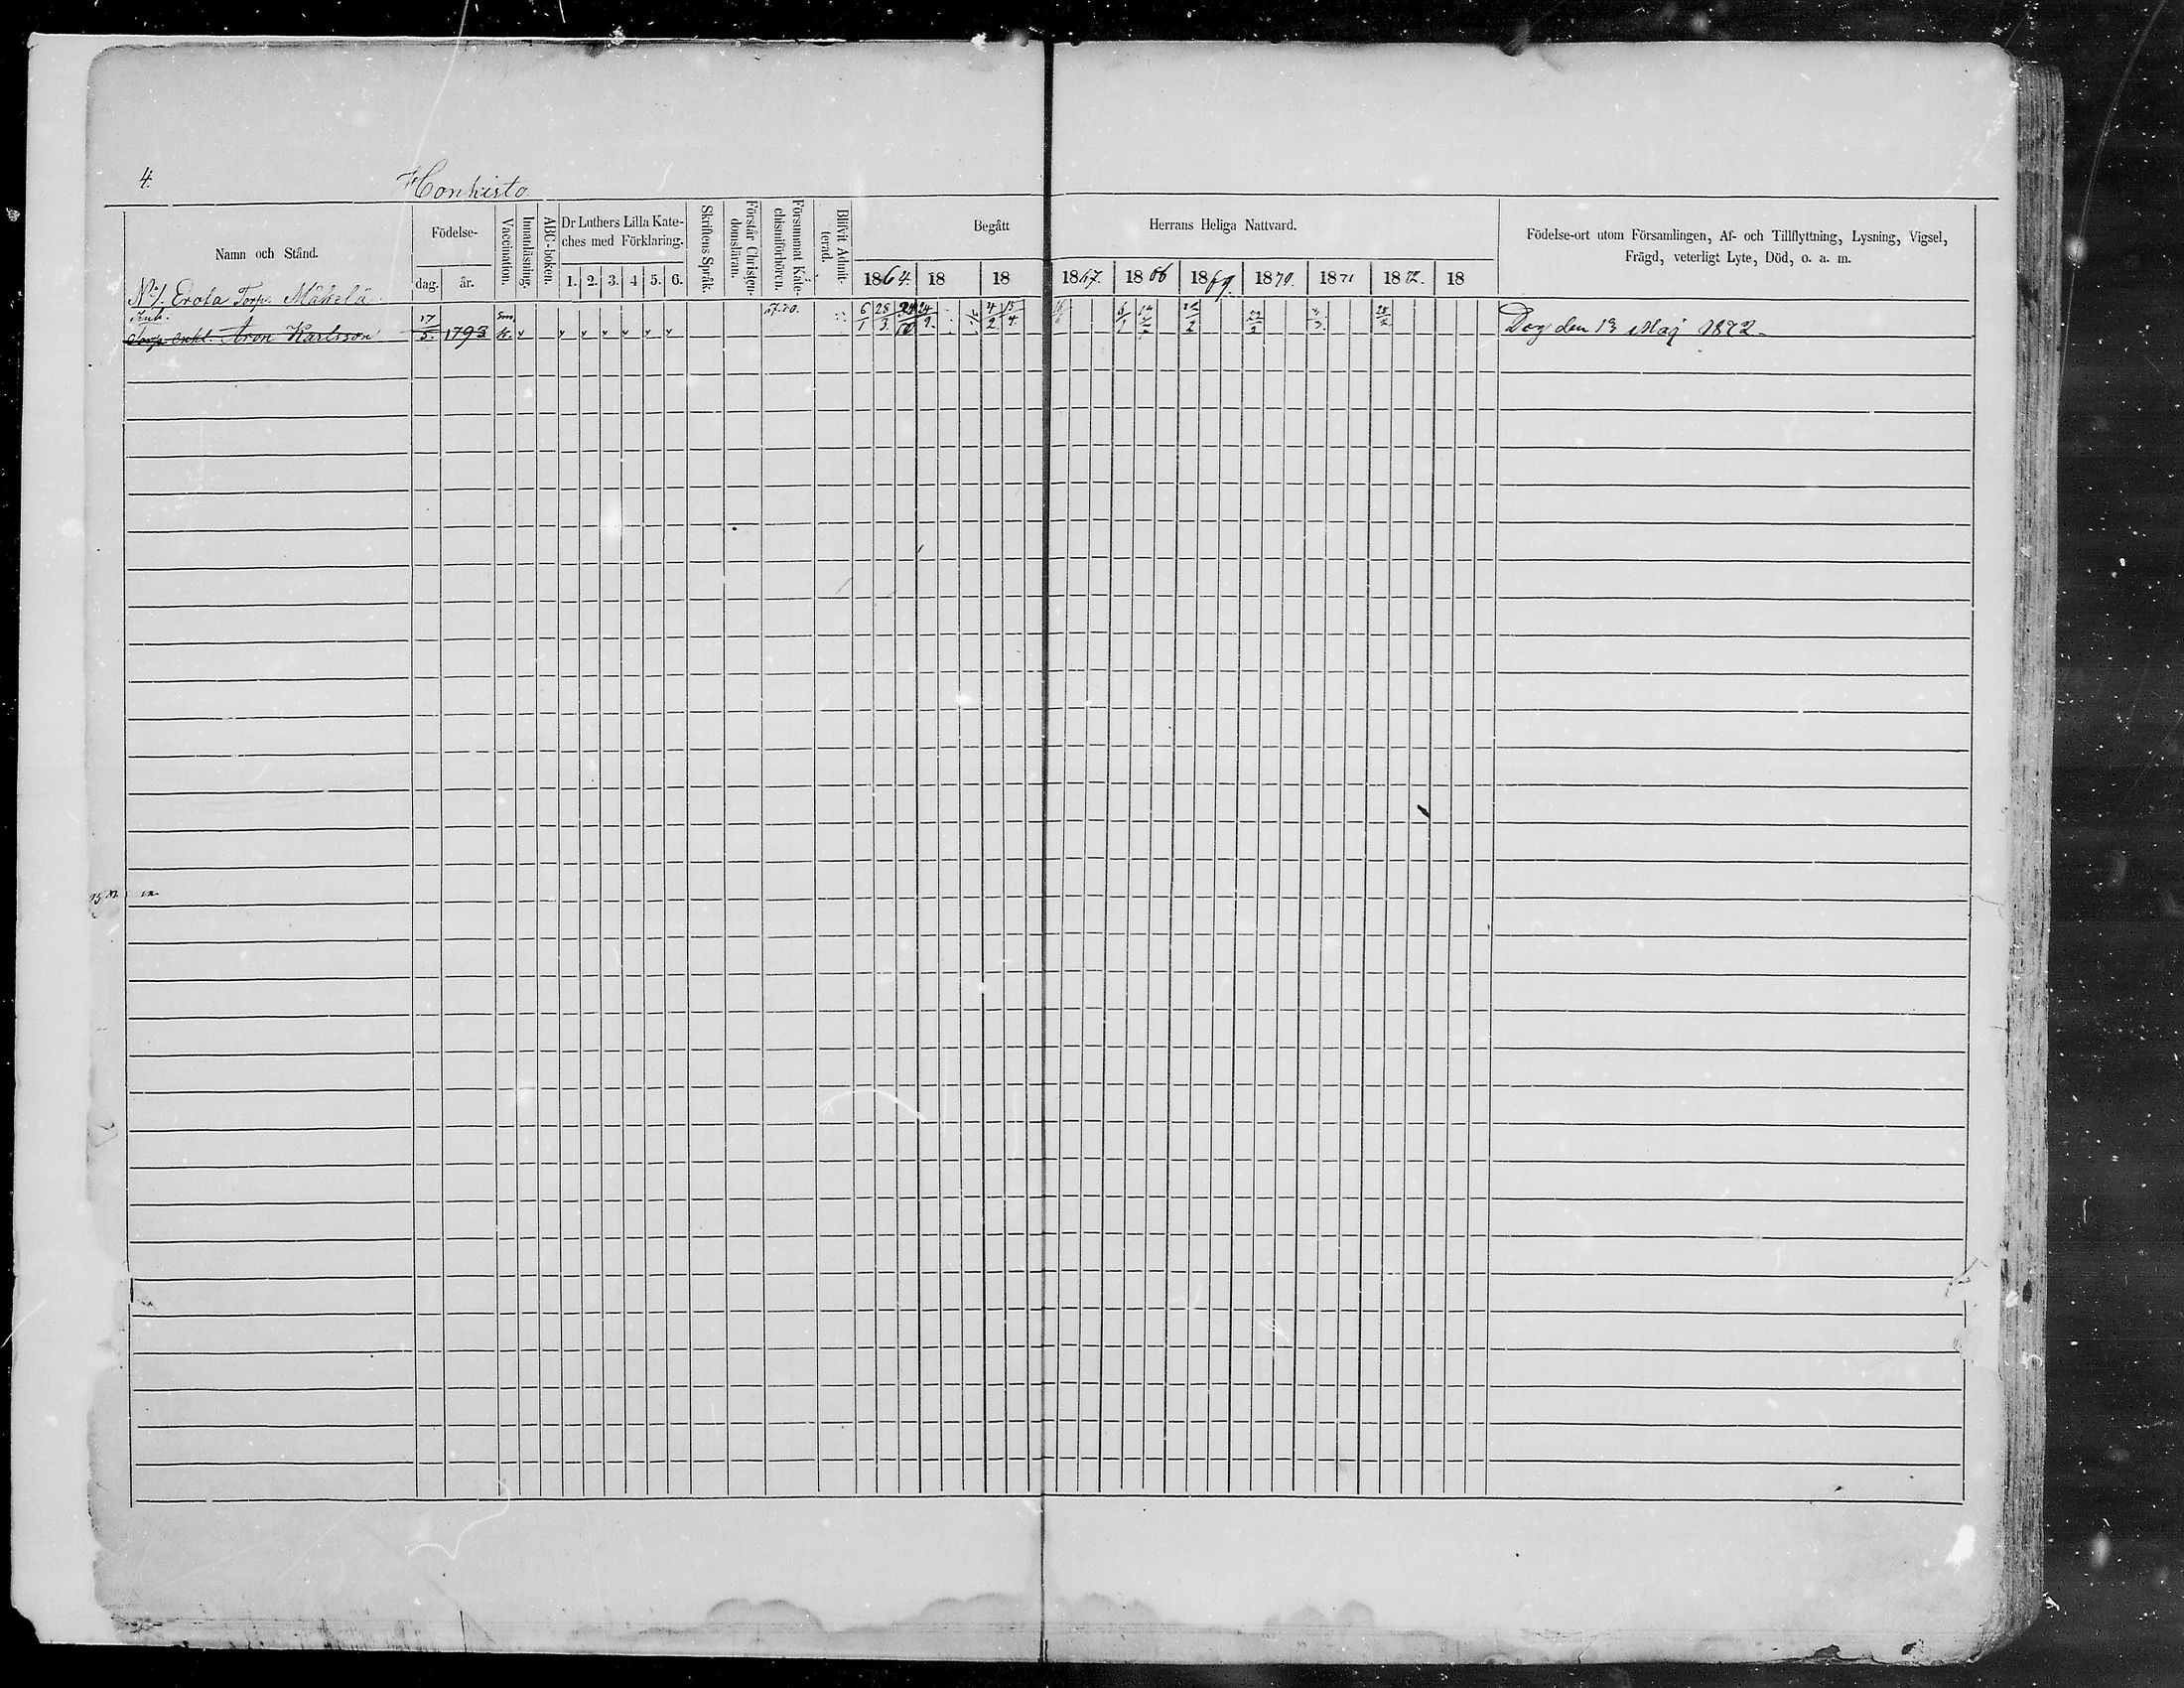 4.
Honkisto
Namn och Stånd.
Födelse-
dag. år.
Vaccination.
Innanläsning.
ABC-boken.
Dr Luthers Lilla Kate-
ches med Förklaring.
1. 2. 3. 4 5. 6.
Skriftens Språk.
Förstår Christen-
domsläran.
Försummat Kate-
chismiförhören.
Blifvit Admit-
terad.
Begått Herrans Heliga Nattvard.
1864. 18 18 1867. 18 1869. 1870. 1871 1872. 18
Födelse-ort utom Församlingen, Af- och Tillflyttning, Lysning, Vigsel,
Frägd, veterligt Lyte, Död, o. a. m.
No 1. Erola Torp. Mäkelä
Inh.
Torp. enkl. Aron Karlsson 17/5. 1793 v v v v v v v 6/1 28/3 24/9. 4/2 Dog den 13 Maj 1872.